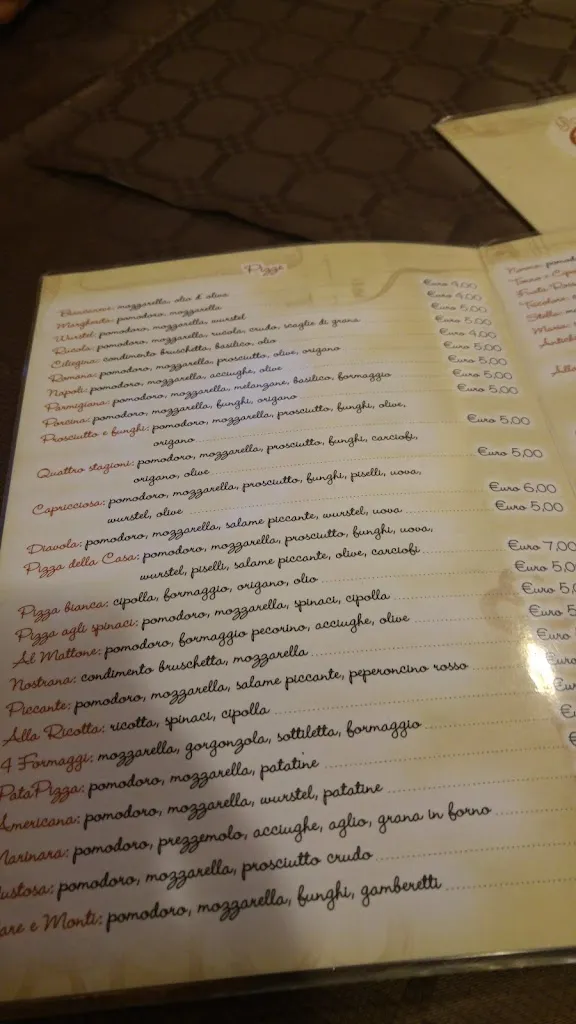 Pizze
mozzarella, olio d'oliva
Euro 4,00
Margherita: pomodoro, mozzarella
Euro 4,00
Wurstel: pomodoro, mozzarella, wurstel
Euro 5,00
Rucola: pomodoro, mozzarella, rucola, crudo, scaglie di grana
Euro 5,00
Ciliegina: condimento bruschetta, basilico, olio
Euro 4,00
Romana: pomodoro, mozzarella, prosciutto, olive, origano
Euro 5,00
Napoli: pomodoro, mozzarella, acciughe, olive
Euro 5,00
Parmigiana: pomodoro, mozzarella, melanzane, basilico, formaggio
Euro 5,00
Porcina: pomodoro, mozzarella, funghi, origano
Euro 5,00
Prosciutto e funghi: pomodoro, mozzarella, prosciutto, funghi, olive,
origano
Euro 5,00
Quattro stagioni: pomodoro, mozzarella, prosciutto, funghi, carciofi,
origano, olive
Euro 5,00
Capricciosa: pomodoro, mozzarella, prosciutto, funghi, piselli, uova,
wurstel, olive
Euro 6,00
Diavola: pomodoro, mozzarella, salame piccante, wurstel, uova
Euro 5,00
Pizza della Casa: pomodoro, mozzarella, prosciutto, funghi, uova,
wurstel, piselli, salame piccante, olive, carciofi
Euro 7,00
Pizza bianca: cipolla, formaggio, origano, olio
Euro 5,0
Pizza agli spinaci: pomodoro, mozzarella, spinaci, cipolla
Euro 5,
Al Mattone: pomodoro, formaggio pecorino, acciughe, olive
Euro 5
Nostrana: condimento bruschetta, mozzarella
Euro
Piccante: pomodoro, mozzarella, salame piccante, peperoncino rosso
Alla Ricotta: ricotta, spinaci, cipolla
4 Formaggi: mozzarella, gorgonzola, sottiletta, formaggio
PataPizza: pomodoro, mozzarella, patatine
Americana: pomodoro, mozzarella, wurstel, patatine
Marinara: pomodoro, prezzemolo, acciughe, aglio, grana in forno
ustosa: pomodoro, mozzarella, prosciutto crudo
are e Monti: pomodoro, mozzarella, funghi, gamberetti